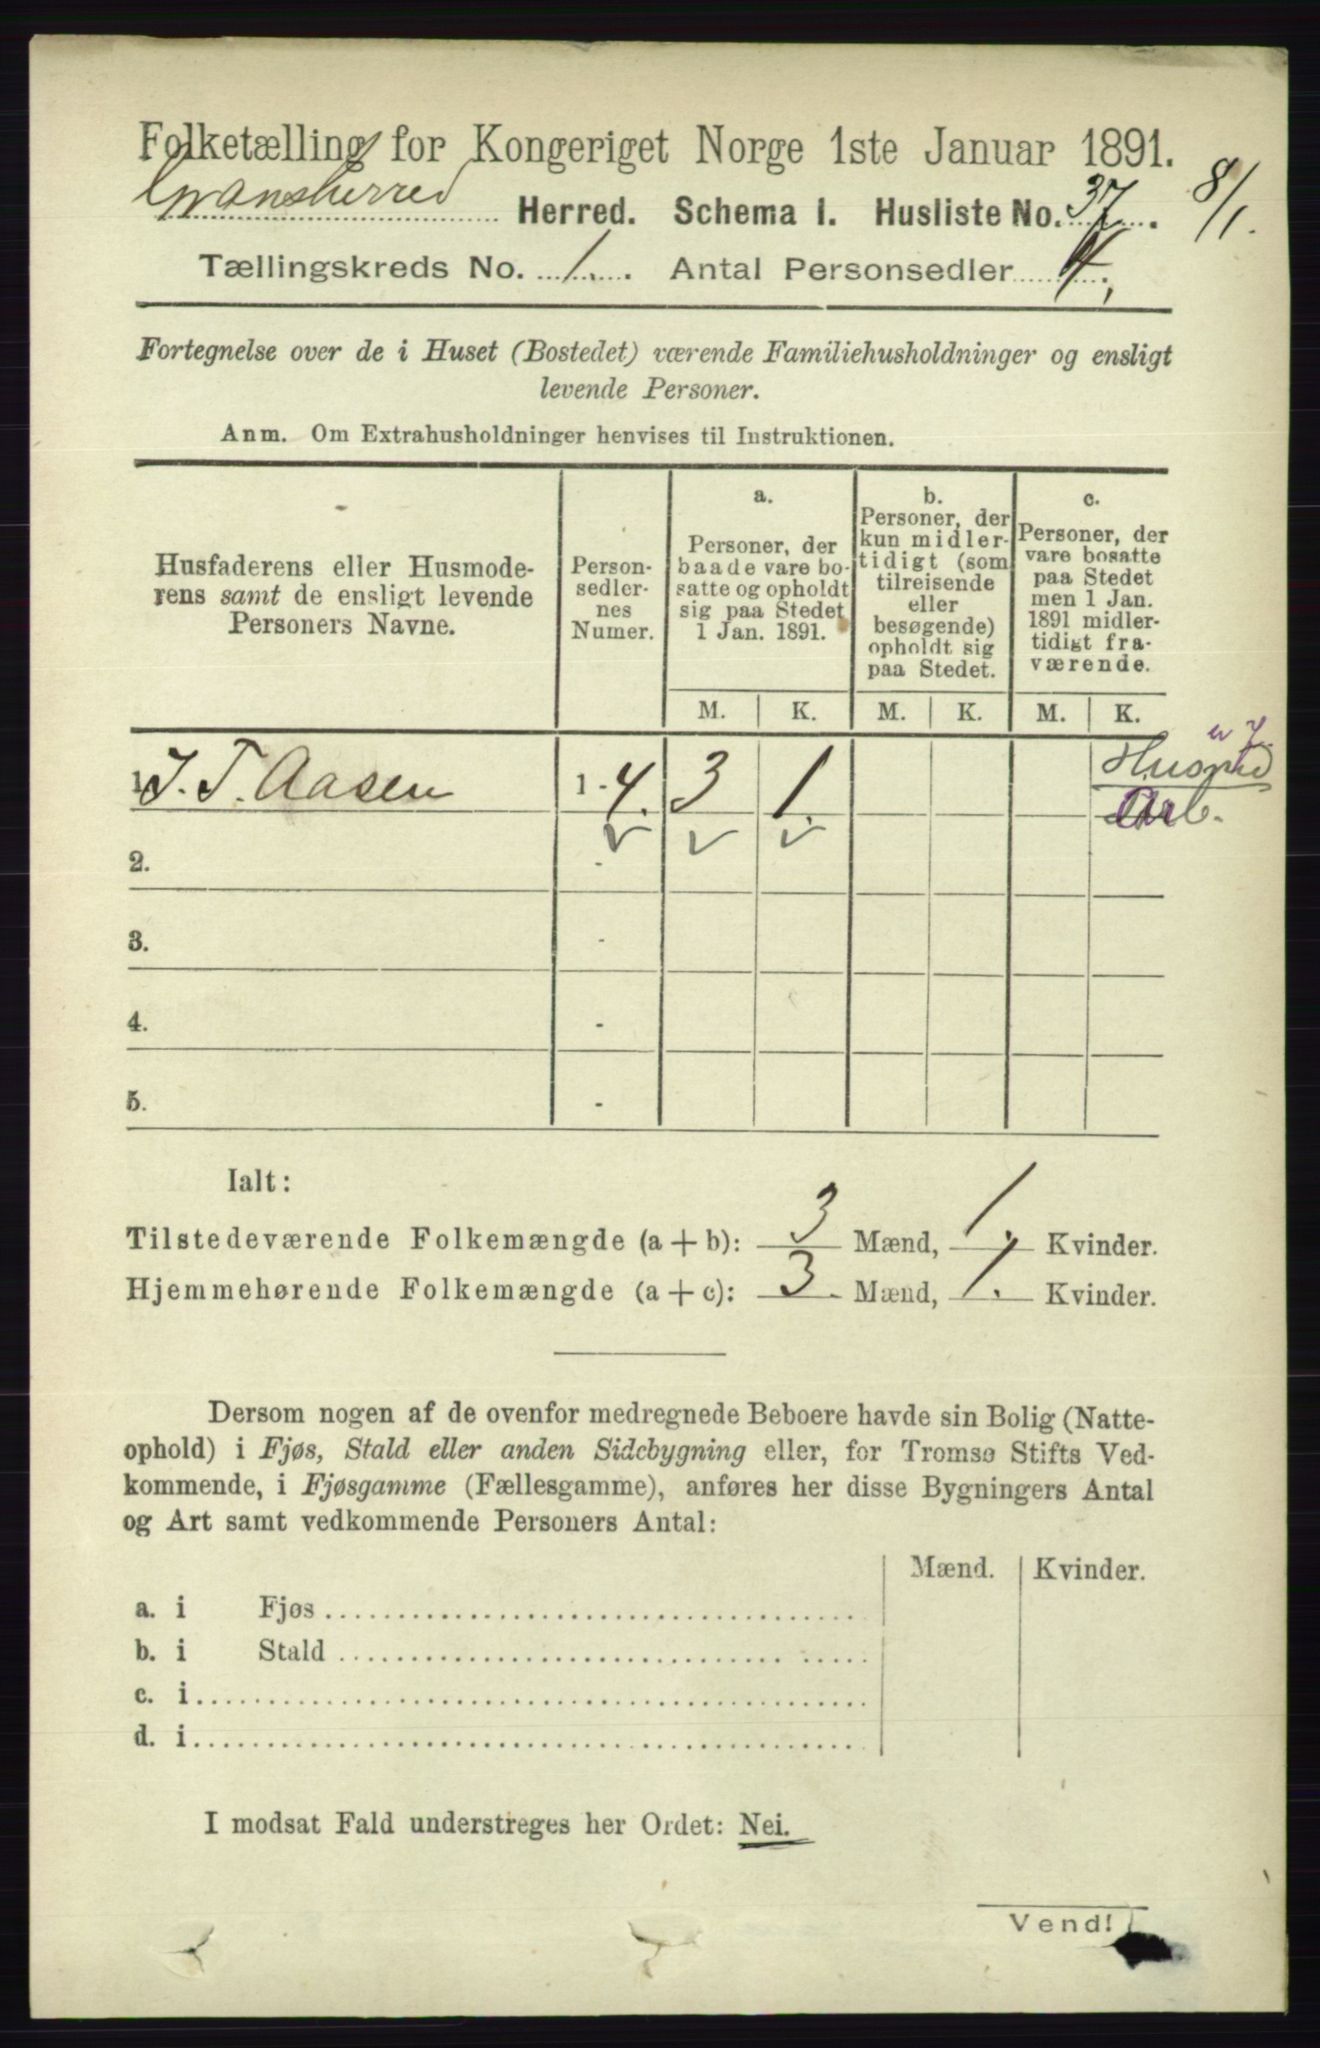 Folketælling for Kongeriget Norge 1ste Januar 1891.
Gransherred Herred. Schema 1. Husliste No. 37. 8/1.
Tællingskreds No. 1. Antal Personsedler 4.
Fortegnelse over de i Huset (Bostedet) værende Familiehusholdninger og ensligt
levende Personer.
Anm. Om Extrahusholdninger henvises til Instruktionen.
Husfaderens eller Husmode-
rens samt de ensligt levende
Personers Navne.
Person-
sedler-
nes
Numer.
a.
Personer, der
baade vare bo-
satte og opholdt
sig paa Stedet
1 Jan. 1891.
b.
Personer, der
kun midler-
tidigt (som
tilreisende
eller
besøgende)
opholdt sig
paa Stedet.
c.
Personer, der
vare bosatte
paa Stedet
men 1 Jan.
1891 midler-
tidigt fra-
værende.
M. K. M. K. M. K.
1. J. T. Aasen 1-4. 3 1.
Arb.
2. -
3. -
4. -
5. -
Ialt:
Tilstedeværende Folkemængde (a + b): 3 Mænd, 1. Kvinder.
Hjemmehørende Folkemængde (a + c): 3. Mænd, 1. Kvinder.
Dersom nogen af de ovenfor medregnede Beboere havde sin Bolig (Natte-
ophold) i Fjøs, Stald eller anden Sidebygning eller, for Tromsø Stifts Ved-
kommende, i Fjøsgamme (Fællesgamme), anføres her disse Bygningers Antal
og Art samt vedkommende Personers Antal:
Mænd. Kvinder.
a. i Fjøs
b. i Stald
c. i
d. i
I modsat Fald understreges her Ordet: Nei.
Vend!